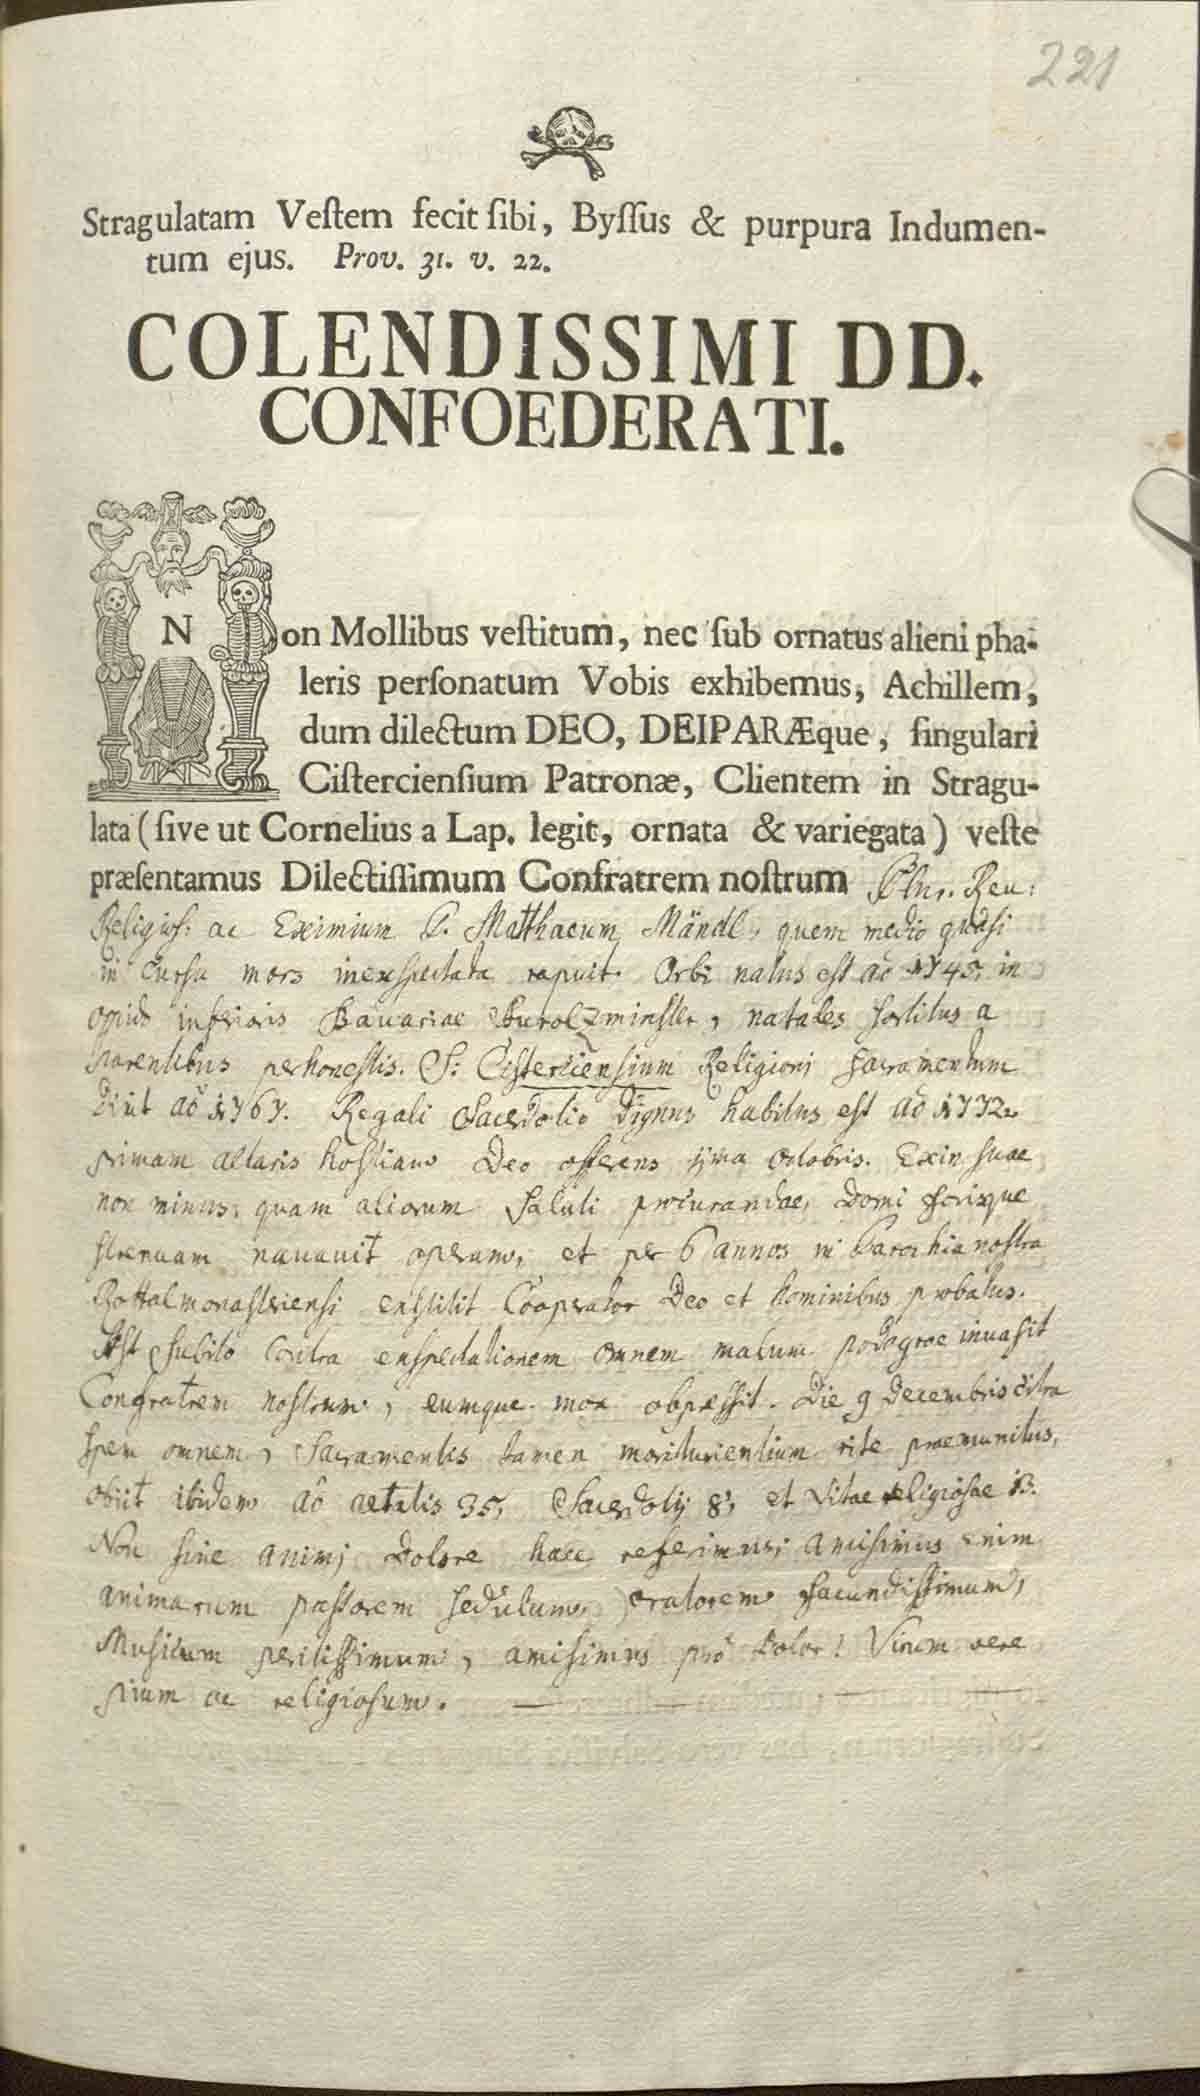 221
Stragulatam Veſtem fecit ſibi, Byſſus & purpura Indumen-
tum ejus. Prov. 31. v. 22.
COLENDISSIMI DD.
CONFOEDERATI.
Non Mollibus veſtitum, nec ſub ornatus alieni pha-
leris perſonatum Vobis exhibemus, Achillem,
dum dilectum DEO, DEIPARÆque, ſingulari
Ciſtercienſium Patronæ, Clientem in Stragu-
lata (ſive ut Cornelius a Lap. legit, ornata & variegata) veſte
præſentamus Dilectiſſimum Confratrem noſtrum Plur. Reu:
Religios: ac Eximium P. Matthaeum Mändl, quem medio quasi
in cursu mors inexspectata rapuit. Orbi natus est aõ 1745, in
oppido inferioris Bavariae, natales sortitus a
parentibus perhonestis. S: Cisterciensium Religioni sacramentum
dixit aõ 1767. Regali Sacerdotio dignus habitus est aõ 1772
primam altaris hostiam Deo offerens octobris. Exin suae
non minus, quam aliorum saluti procurandae, domi forisque
strenuam navavit operam, et per 6 annos in Parochia nostra
Rottalmonasteriensi exstitit Cooperator Deo et hominibus probatus.
Ast subitò contra exspectationem omnem malum podagrae invasit
Confratrem nostrum, eumque mox oppressit. Die 9 Decembris citra
spem omnem, Sacramentis tamen moriturientium rite praemunitus,
obiit ibidem aõ aetatis 35, Sacerdotij 8, et vitae religiosae 13.
Non sine animi dolore haec referimus; amisimus enim
animarum pastorem sedulum, oratorem facundissimum,
Musicum peritissimum, amisimus prô dolor! Virum vere
pium ac religiosum.